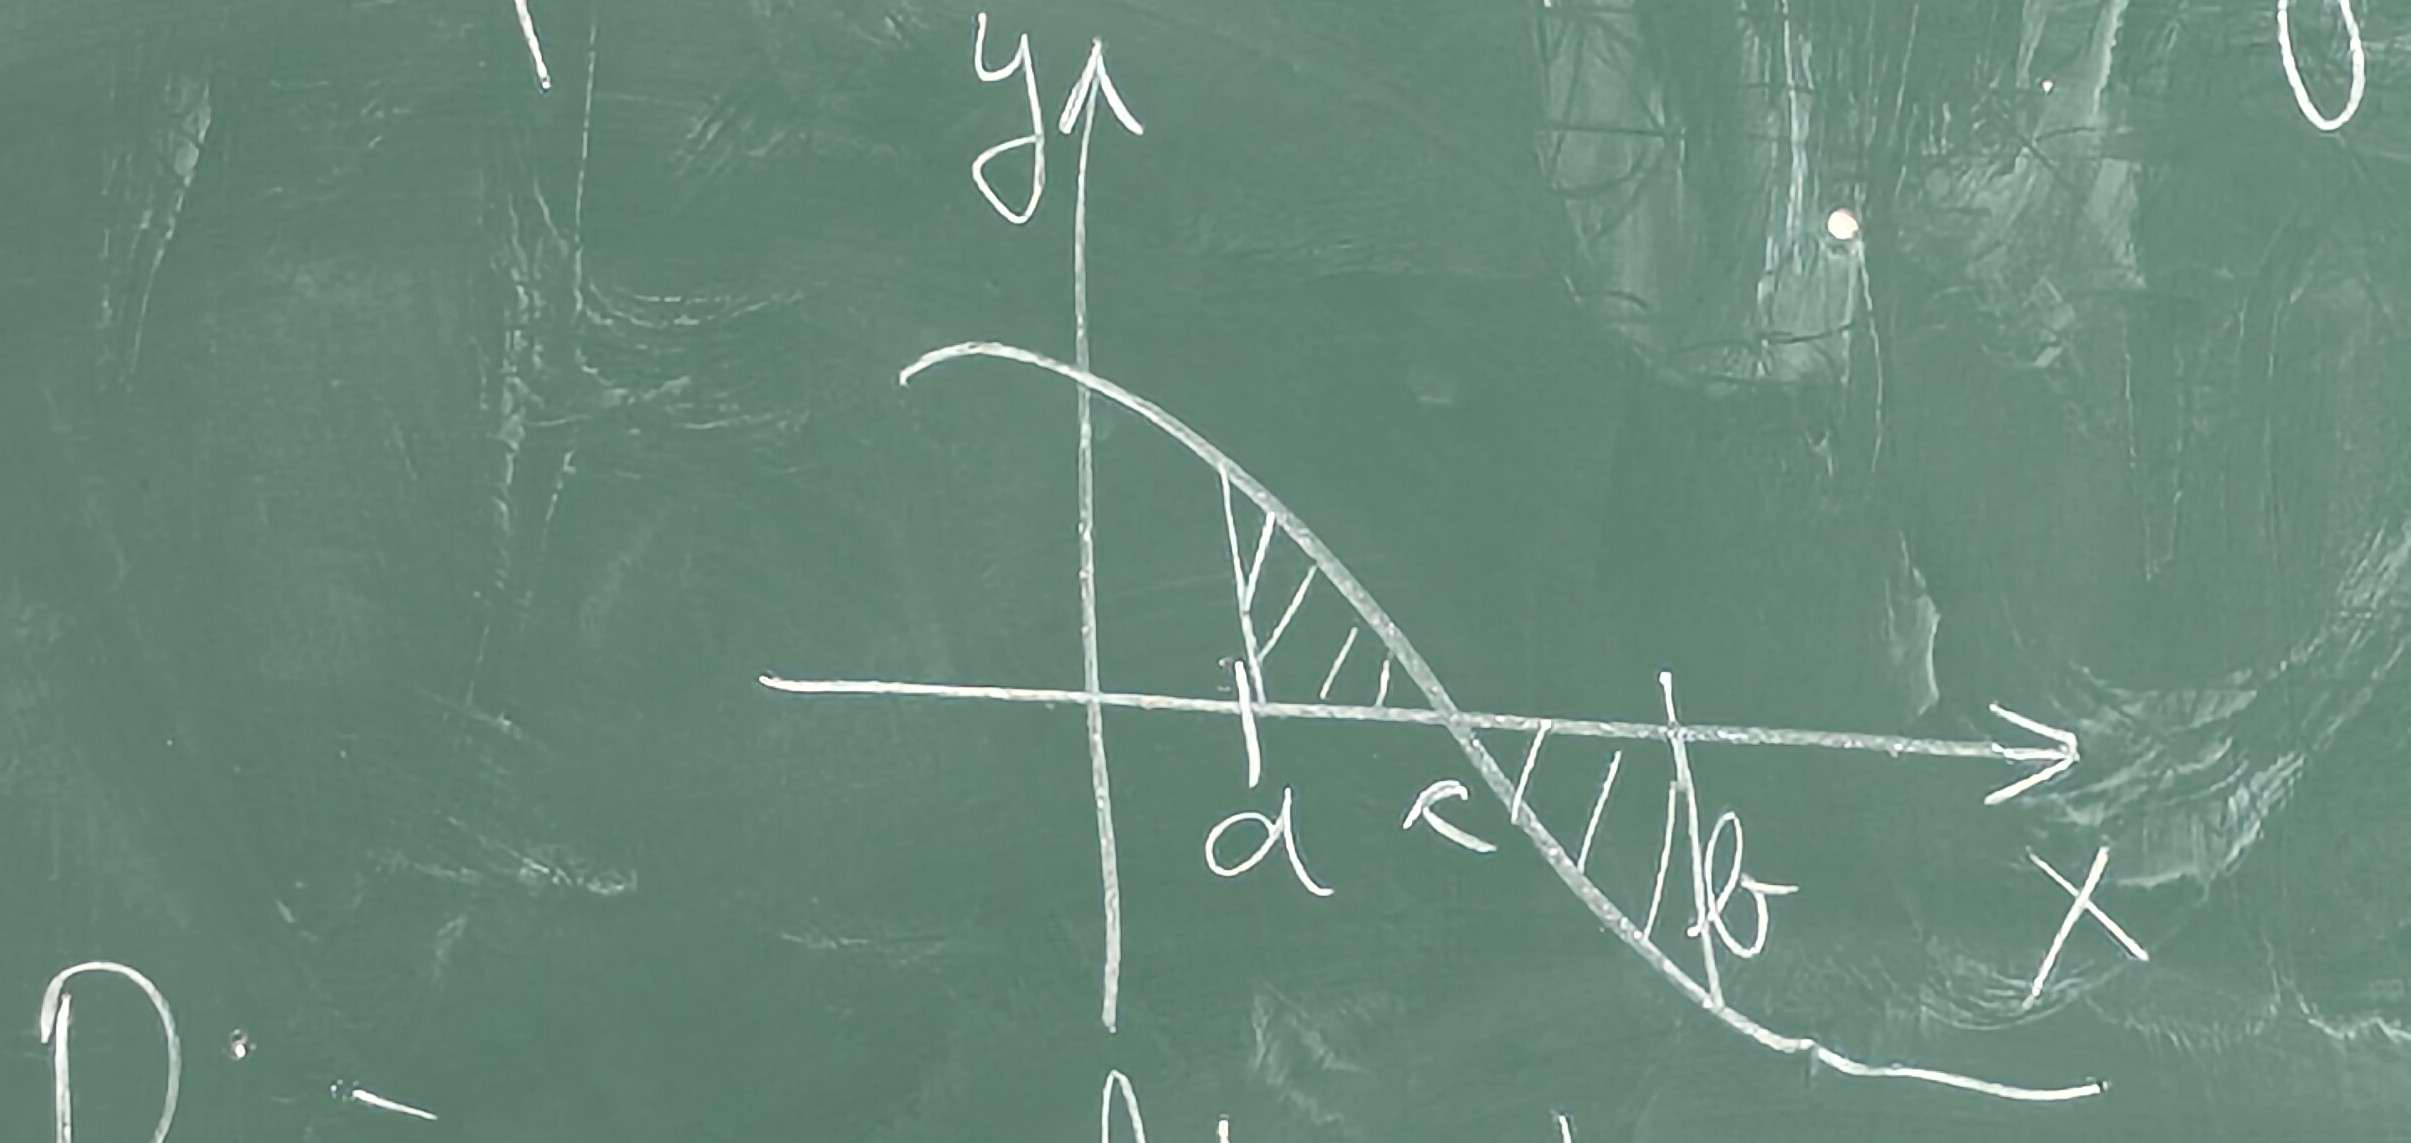 y
a c b
x